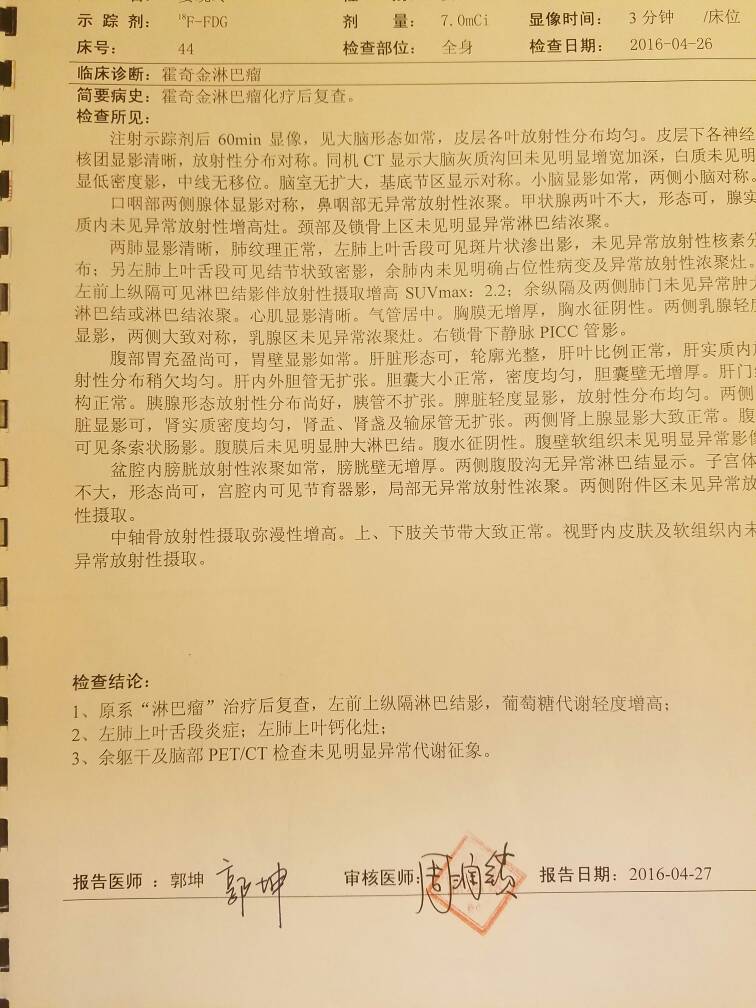 示 踪 剂： ¹⁸F-FDG 剂 量： 7.0mCi 显像时间： 3 分钟 /床位
床号： 44 检查部位： 全身 检查日期： 2016-04-26
临床诊断：霍奇金淋巴瘤
简要病史：霍奇金淋巴瘤化疗后复查。
检查所见：
注射示踪剂后 60min 显像，见大脑形态如常，皮层各叶放射性分布均匀。皮层下各神经
核团显影清晰，放射性分布对称。同机 CT 显示大脑灰质沟回未见明显增宽加深，白质未见明
显低密度影，中线无移位。脑室无扩大，基底节区显示对称。小脑显影如常，两侧小脑对称。
口咽部两侧腺体显影对称，鼻咽部无异常放射性浓聚。甲状腺两叶不大，形态可，腺实
质内未见异常放射性增高灶。颈部及锁骨上区未见明显异常淋巴结浓聚。
两肺显影清晰，肺纹理正常，左肺上叶舌段可见斑片状渗出影，未见异常放射性核素分
布；另左肺上叶舌段可见结节状致密影，余肺内未见明确占位性病变及异常放射性浓聚灶。
左前上纵隔可见淋巴结影伴放射性摄取增高 SUVmax：2.2；余纵隔及两侧肺门未见异常肿大
淋巴结或淋巴结浓聚。心肌显影清晰。气管居中。胸膜无增厚，胸水征阴性。两侧乳腺轻度
显影，两侧大致对称，乳腺区未见异常浓聚灶。右锁骨下静脉 PICC 管影。
腹部胃充盈尚可，胃壁显影如常。肝脏形态可，轮廓光整，肝叶比例正常，肝实质内放
射性分布稍欠均匀。肝内外胆管无扩张。胆囊大小正常，密度均匀，胆囊壁无增厚。肝门结
构正常。胰腺形态放射性分布尚好，胰管不扩张。脾脏轻度显影，放射性分布均匀。两侧
脏显影可，肾实质密度均匀，肾盂、肾盏及输尿管无扩张。两侧肾上腺显影大致正常。腹
可见条索状肠影。腹膜后未见明显肿大淋巴结。腹水征阴性。腹壁软组织未见明显异常影像
盆腔内膀胱放射性浓聚如常，膀胱壁无增厚。两侧腹股沟无异常淋巴结显示。子宫体
不大，形态尚可，宫腔内可见节育器影，局部无异常放射性浓聚。两侧附件区未见异常放
性摄取。
中轴骨放射性摄取弥漫性增高。上、下肢关节带大致正常。视野内皮肤及软组织内未
异常放射性摄取。
检查结论：
1、原系“淋巴瘤”治疗后复查，左前上纵隔淋巴结影，葡萄糖代谢轻度增高；
2、左肺上叶舌段炎症；左肺上叶钙化灶；
3、余躯干及脑部 PET/CT 检查未见明显异常代谢征象。
报告医师 ：郭坤 郭坤 审核医师： 报告日期：2016-04-27